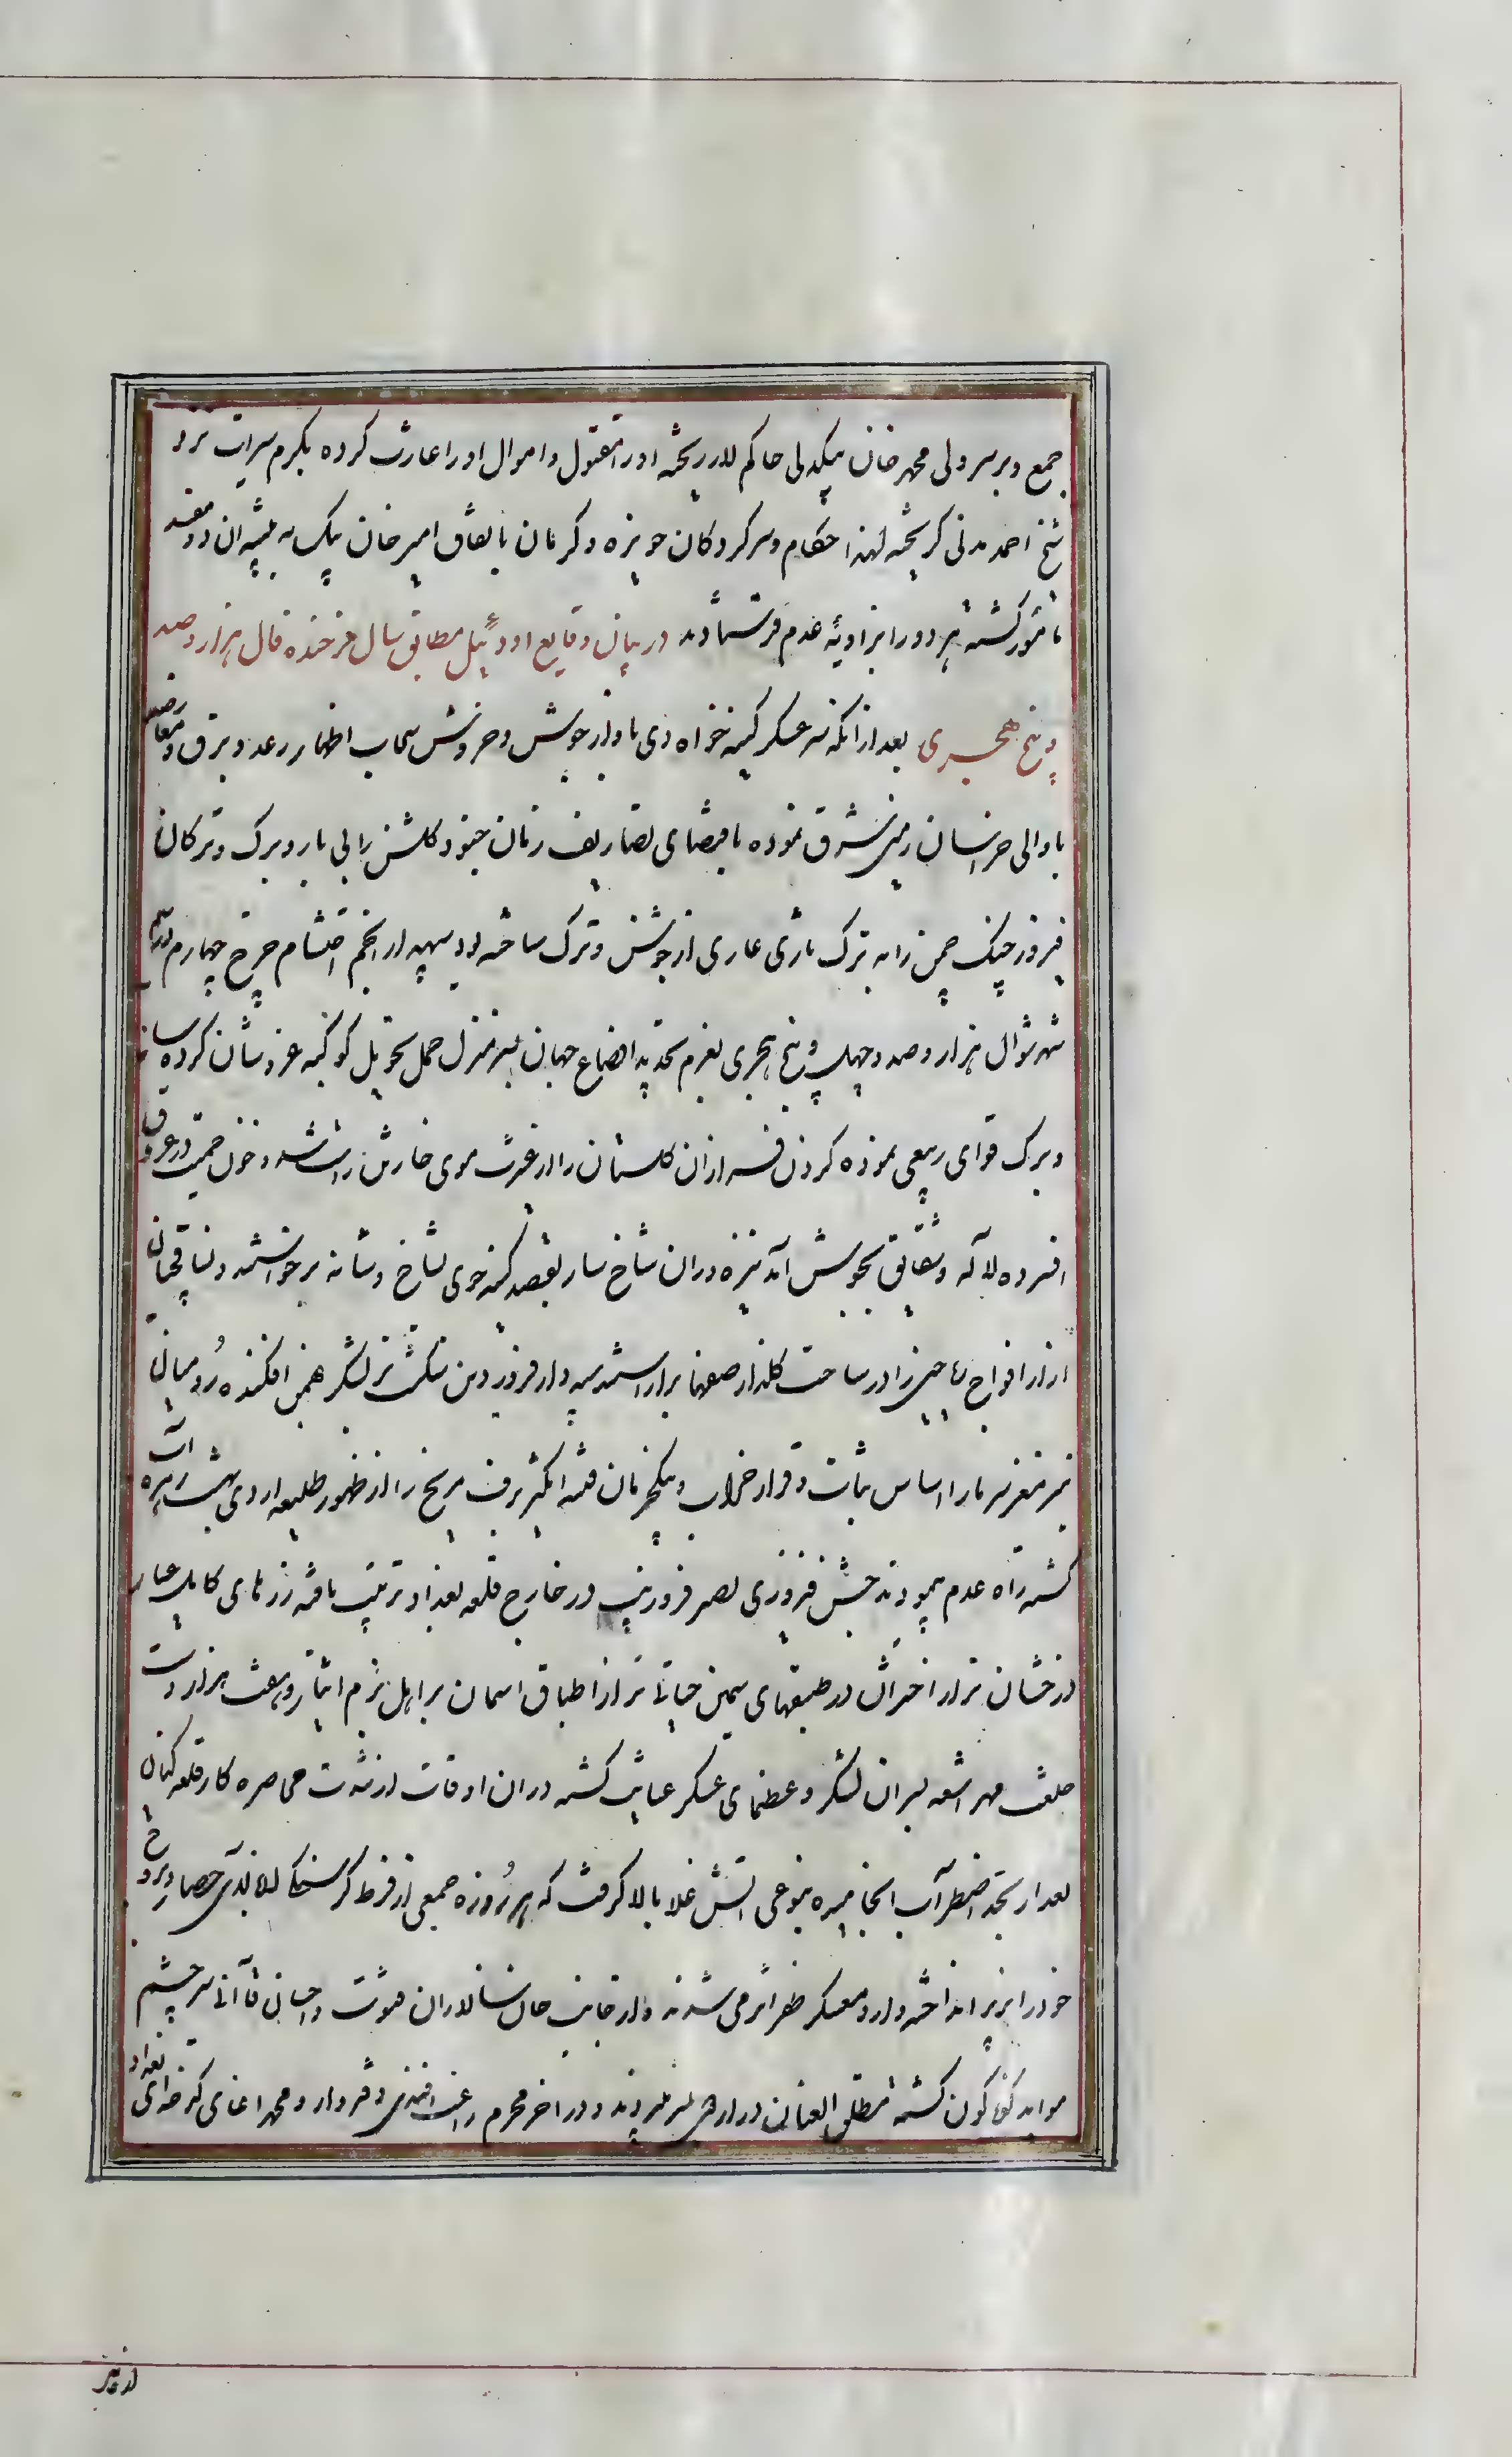 جمع و بر سر ولی محمد خان بیکدلی حاکم لار ریخته او را مقتول و اموال او را غارت کرده بکرمسیرات نزد
شیخ احمد مدنی کریخته لهذا حکام و سرکردکان حویزه و کرمان باتفاق امیر خان بیک به تنبیه ان دو مفسد
مأمور کشته هر دو را بزاویهٔ عدم فرستادند در بیان وقایع اود ئیل مطابق سال فرخنده فال هزار و صد
و پنج هجری بعد از انکه سر عسکر کینه خواه دی با ولوله جوش و خروش سحاب اظهار رعد و برق و معارضه
با والی خراسان زمین مشرق نموده باقتضای تصاریف زمان جنود کلشن را بی بار و برک و ترکان
فیروز جنک چمن را به ترک تازی عاری از جوشن و ترک ساخته بود سپهدار انجم احتشام چرخ چهارم در
شهر شوال هزار و صد و چهل و پنج هجری بعزم تجدید اوضاع جهان بسر منزل حمل تحویل کوکبه عز و شان کرده ساز
و برک قوای ربیعی نموده کردن فرازان کلستان را از غیرت موی خار بر تن راست شد و خون حمیت در عروق
افسرده لاله و شقایق بجوش آمد نیزه وران شاخسار بقصد کینه جوی شاخ و شانه بر خواستند و نساقچیان
از هار افواج ریاحین را در ساحت کلزار صفها برار استند سپهدار فروردین شکست بر لشکر بهمن افکنده رومیان
تیره مغز سرما را اساس ثبات و قرار خراب و ینکچریان فتنه انکیز برف و یخ را از ظهور طلیعه اردی بهشت زهره آب
کشته راه عدم پیمودند جشن فیروزی نصر فروردین در خارج قلعه بغداد ترتیب یافته زرهای کامل عیار
درخشان تر از اختران در طبقهای سیمین خبایا تر از اطباق اسمان بر اهل بزم ایثار و هفت هزار دست
خلعت مهر اشعه بسران لشکر و عظمای عسکر عنایت کشته در ان اوقات از شدت محاصره کار قلعه کیان
بغداد بحد اضطراب انجامیده بنوعی اتش غلا بالا کرفت که هر روزه جمعی از فرط کرسنکی از بالای حصار و بروج
خود را بزیر انداخته وارد معسکر ظفر اثر می شدند و از جانب خان نسالاران مروت و احسان قاآنی سر چشم
مواید کوناکون کشته مطلق العنان در اردوی بسر میبردند و در اخر محرم راغب افندی دفتردار و محمد اغای کدخدای بغداد
از نیز